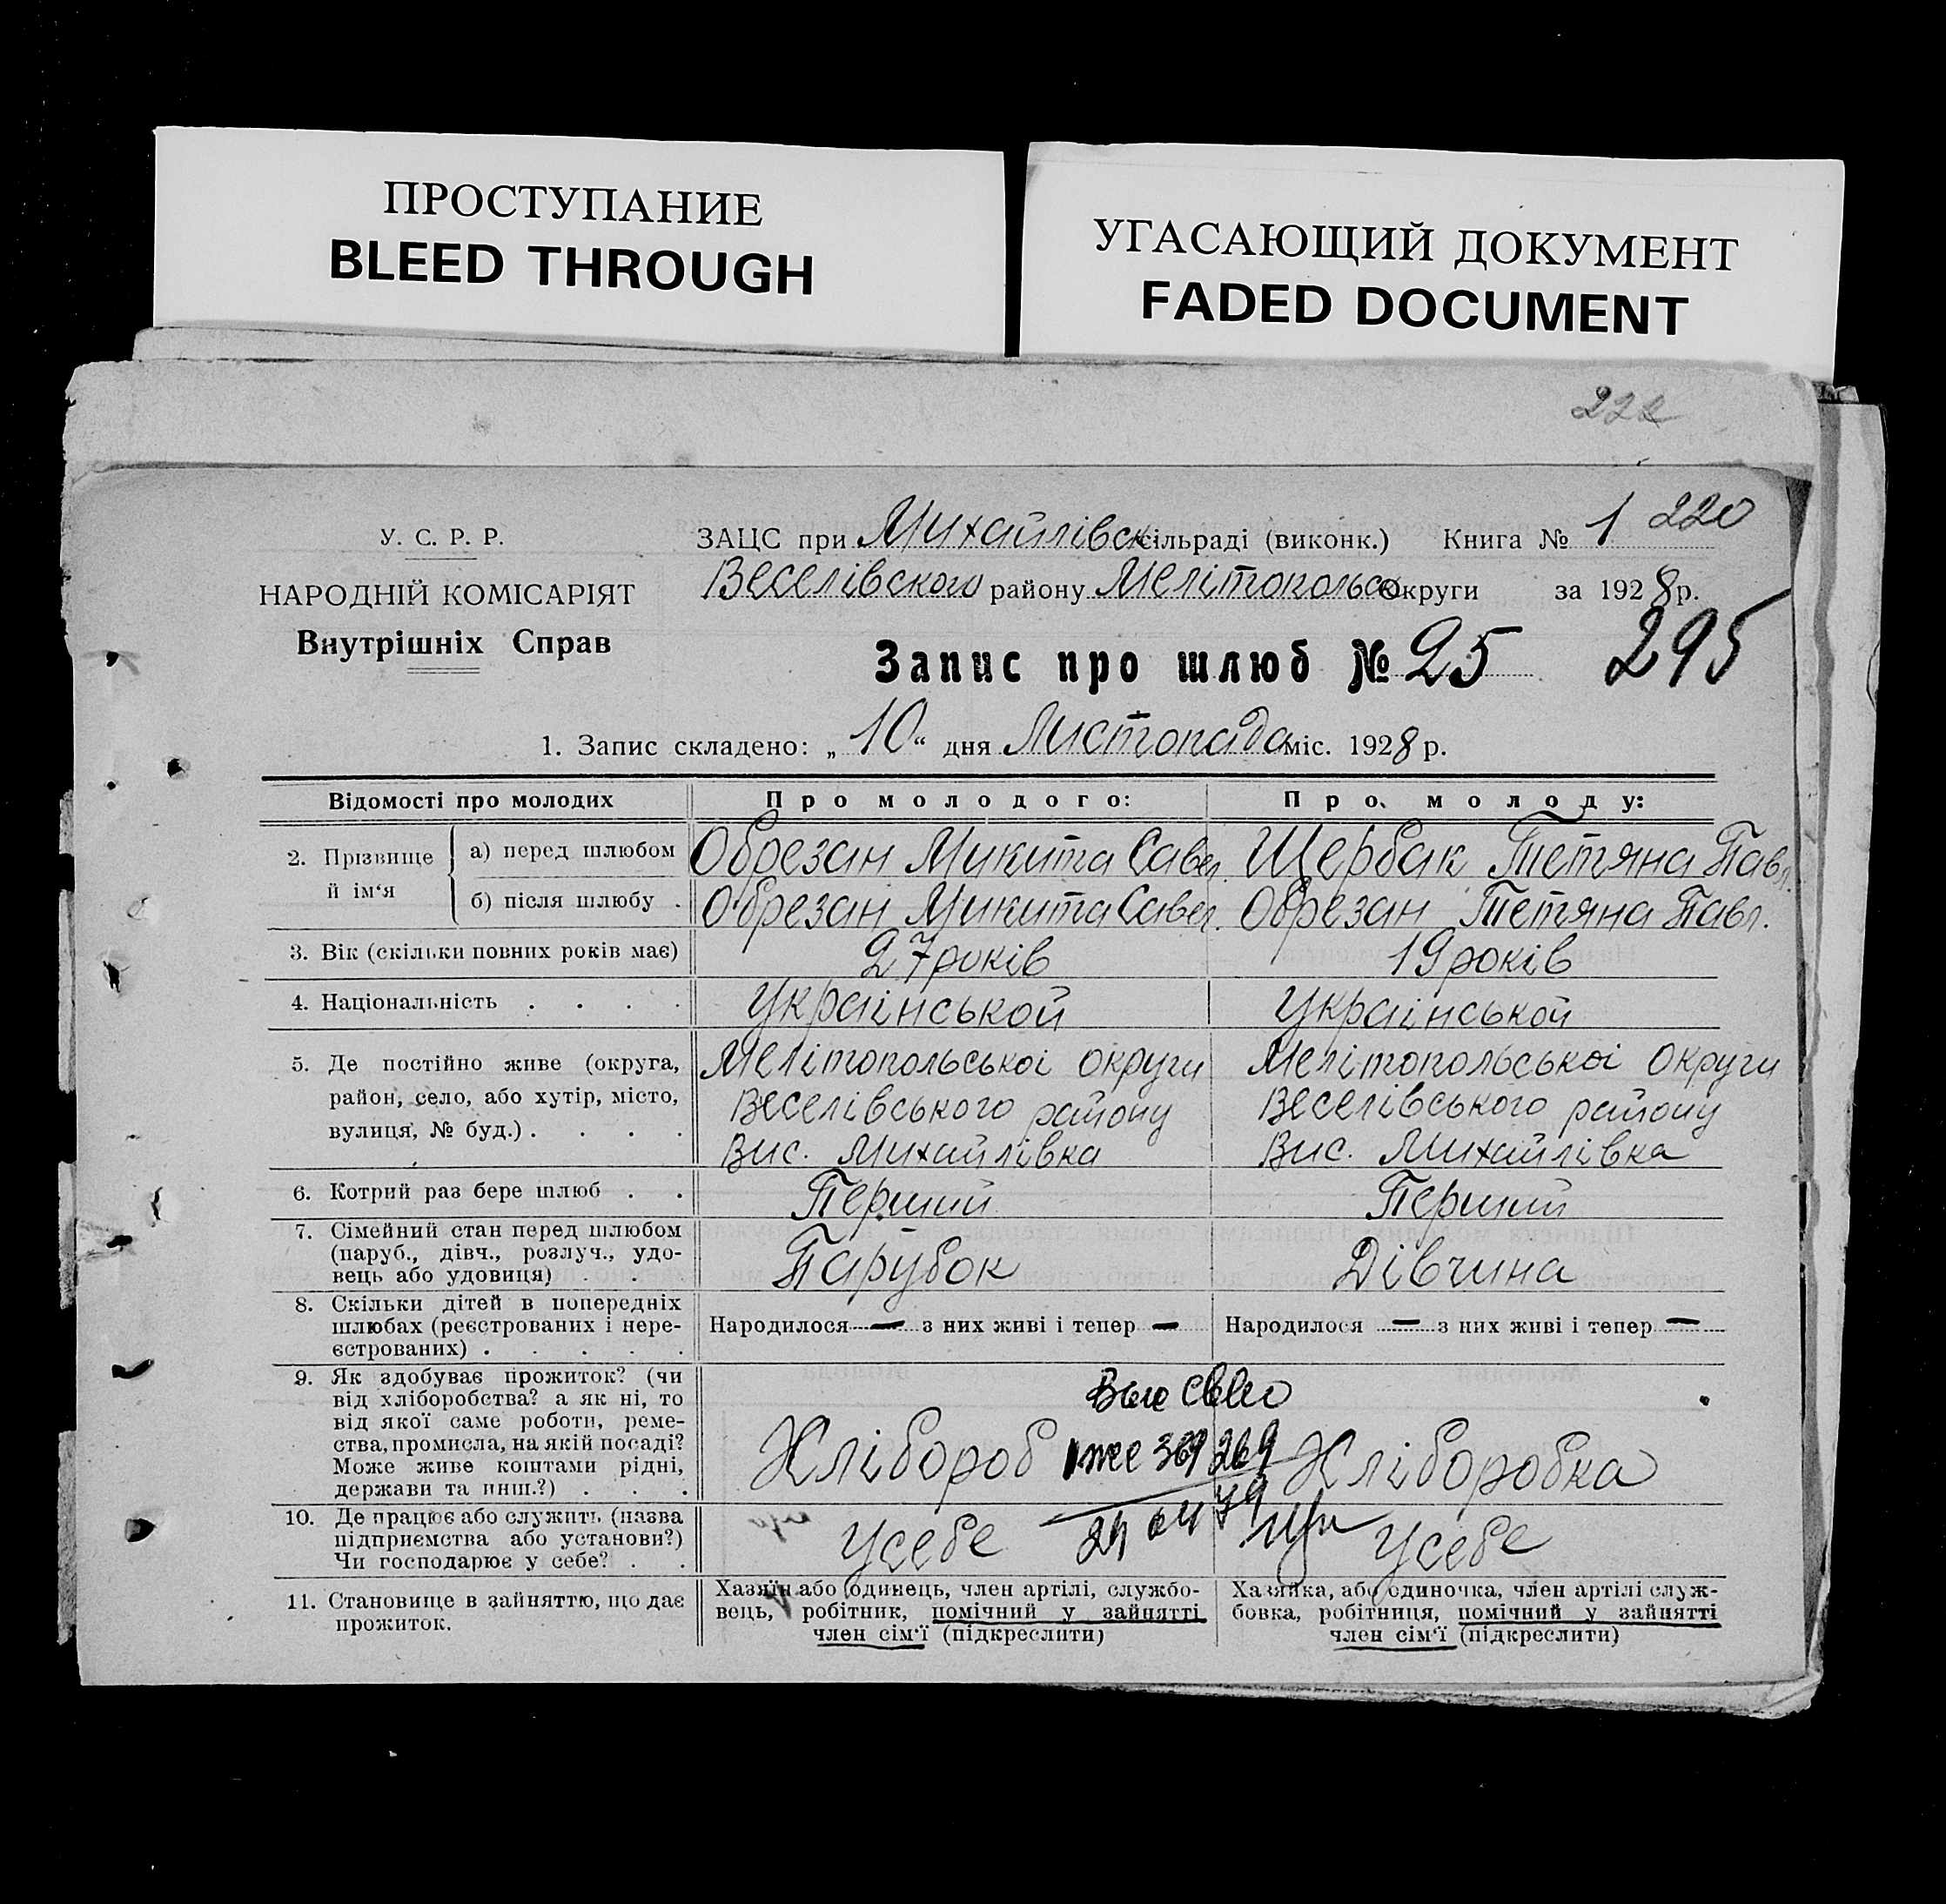 ПРОСТУПАНИЕ
BLEED THROUGH
УГАСАЮЩИЙ ДОКУМЕНТ
FADED DOCUMENT
222
У. С. Р. Р.
НАРОДНІЙ КОМІСАРІЯТ
Внутрішніх Справ
ЗАЦС при Михайлівск сільраді (виконк.) Книга № 1 220
Веселівского району Мелітопольс Округи за 1928 р.
Запис про шлюб № 25 295
1. Запис складено: „10“ дня Листопада міс. 1928 р.
Відомості про молодих
Про молодого:
Про молоду:
2. Прізвище й ім‘я
а) перед шлюбом
Обрезан Микита Савел.
Щербак Тетяна Павл.
б) після шлюбу .
Обрезан Микита Савел.
Обрезан Тетяна Павл.
3. Вік (скільки повних років має)
27 років
19 років
4. Національність . . . .
Українськой
Українськой
5. Де постійно живе (округа,
район, село, або хутір, місто,
вулиця, № буд.) . . . .
Мелітопольскоі округи
Веселівського району
Вис. Михайлівка
Мелітопольськоі округи
Веселівського району
Вис. Михайлівка
6. Котрий раз бере шлюб . .
Перший
Перший
7. Сімейний стан перед шлюбом
(паруб., дівч., розлуч., удо-
вець або удовиця) . . .
Парубок
Дівчина
8. Скільки дітей в попередніх
шлюбах (реєстрованих і нере-
єстрованих) . . . . .
Народилося — з них живі і тепер —
Народилося — з них живі і тепер —
9. Як здобуває прожиток? (чи
від хліборобства? а як ні, то
від якої саме роботи, реме-
ства, промисла, на якій посаді?
Може живе коштами рідні,
держави та инш.?) . . .
Хлібороб
369269
Хліборобка
10. Де працює або служить (назва
підприємства або установи?)
Чи господарює у себе? . .
Усебе
24 04 79
Усебе
11. Становище в зайняттю, що дає
прожиток.
Хазяїн або одинець, член артілі, службо-
вець, робітник, помічний у зайнятті
член сім‘ї (підкреслити)
Хазяйка, або одиночка, член артілі служ-
бовка, робітниця, помічний у зайнятті
член сім‘ї (підкреслити)